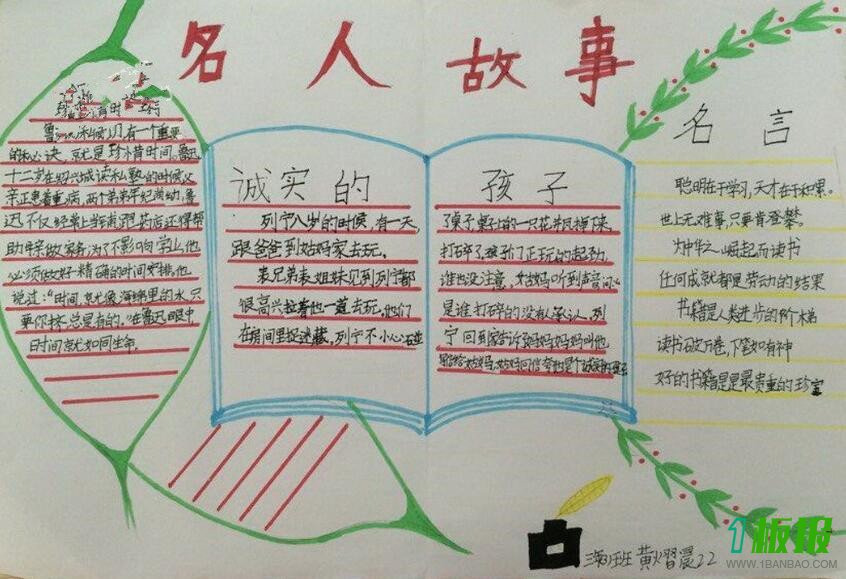 名人故事
鲁迅的成功,有一个重要
的秘诀,就是珍惜时间。鲁迅
十二岁在绍兴城读私塾的时候,父
亲正患着重病,两个弟弟年纪尚幼,鲁
迅不仅经常上当铺,跑药店,还得帮
助母亲做家务,为了不影响学业,他
必须做好精确的时间安排,他
说过:“时间,就像海绵里的水,只
要你挤,总是有的。”在鲁迅眼中,
时间就如同生命。
诚实的
列宁八岁的时候,有一天,
跟爸爸到姑妈家去玩。
表兄弟表姐妹见到列宁都
很高兴拉着他一道去玩。他们
在房间里捉迷藏,列宁不小心碰
孩子
了桌子,桌子上的一只花并瓦掉下来,
打碎了,孩子们正玩的起劲,
谁也没注意,姑妈听到声音问
是谁打碎的没有人承认。列
宁回到家告诉妈妈妈妈叫他
写信给姑妈,姑妈回信夸他是个诚实的孩子
名言
聪明在于学习,天才在于积累。
世上无难事,只要肯登攀。
为中华之崛起而读书
任何成就都是劳动的结果
书籍是人类进步的阶梯
读书破万卷,下笔如有神
好的书籍是是最贵重的珍宝
班 黄熠晨22
1板报
WWW.1BANBAO.COM